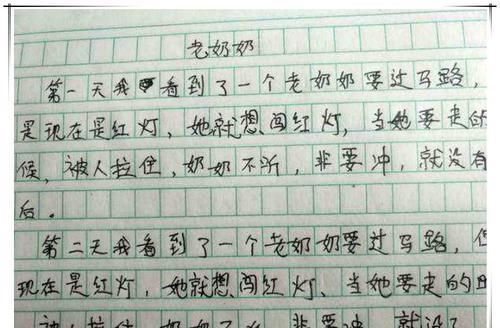 老奶奶
第一天我看到了一个老奶奶要过马路，
是现在是红灯，她就想闯红灯，当她要走的
候，被人拉住，奶奶不听，非要冲，就没有
后。
第二天我看到了一个老奶奶要过马路，但
现在是红灯，她就想闯红灯、当她要走的
被人拉住 奶奶不听 非要冲 就没了